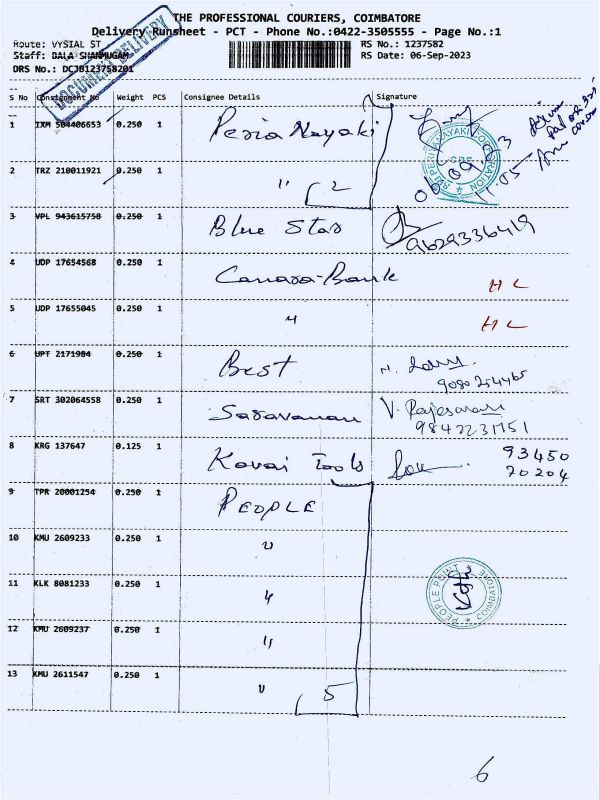 THE PROFESSIONAL COURIERS, COIMBATORE
Delivery Runsheet - PCT - Phone No.:0422-3505555 - Page No.:1
Route: VYSIAL ST RS No.: 1237582
Staff: BALA SHANMUGAM RS Date: 06-Sep-2023
DRS No.: DCJB123758201
DOCUMENT DELIVERY
S No Consignment No Weight PCS Consignee Details Signature
1 IXM 504406653 0.250 1 Peria Nayaki
06.09.23
11.05
2 TRZ 210011921 0.250 1 " 2
3 VPL 943615758 0.250 1 Blue Star 9629336419
4 UDP 17654568 0.250 1 Canara Bank HL
5 UDP 17655045 0.250 1 " HL
6 UPT 2171984 0.250 1 Best
9080254465
7 SRT 302064558 0.250 1 Saravanan V. Rajeswari
9842231751
8 KRG 137647 0.125 1 Kovai Tools 93450
70204
9 TPR 20001254 0.250 1 PEOPLE
10 KMU 2609233 0.250 1 "
11 KLK 8081233 0.250 1 "
PEOPLE POINT
COIMBATORE
12 KMU 2609237 0.250 1 "
13 KMU 2611547 0.250 1 " 5
6